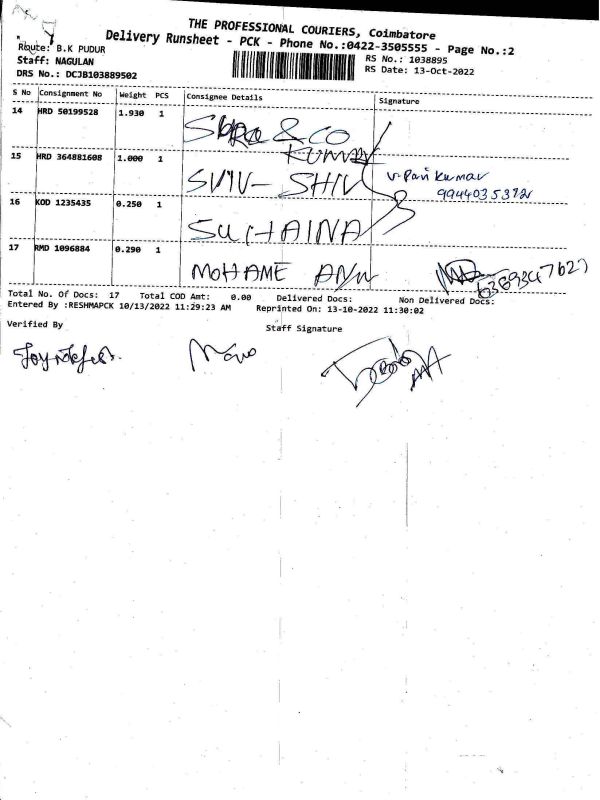 THE PROFESSIONAL COURIERS, Coimbatore
Delivery Runsheet - PCK - Phone No.:0422-3505555 - Page No.:2
Route: B.K PUDUR
RS No.: 1038895
Staff: NAGULAN
RS Date: 13-Oct-2022
DRS No.: DCJB103889502
S No Consignment No Weight PCS Consignee Details Signature
14 HRD 50199528 1.930 1
& CO
KUMAR
15 HRD 364881608 1.000 1 SHIV
V. Pavi Kumar
9944035372
16 KOD 1235435 0.250 1
SUHAINA
17 RMD 1096884 0.290 1
MOHAME ANW
6369347627
Total No. Of Docs: 17 Total COD Amt: 0.00 Delivered Docs: Non Delivered Docs:
Entered By :RESHMAPCK 10/13/2022 11:29:23 AM Reprinted On: 13-10-2022 11:30:02
Verified By Staff Signature